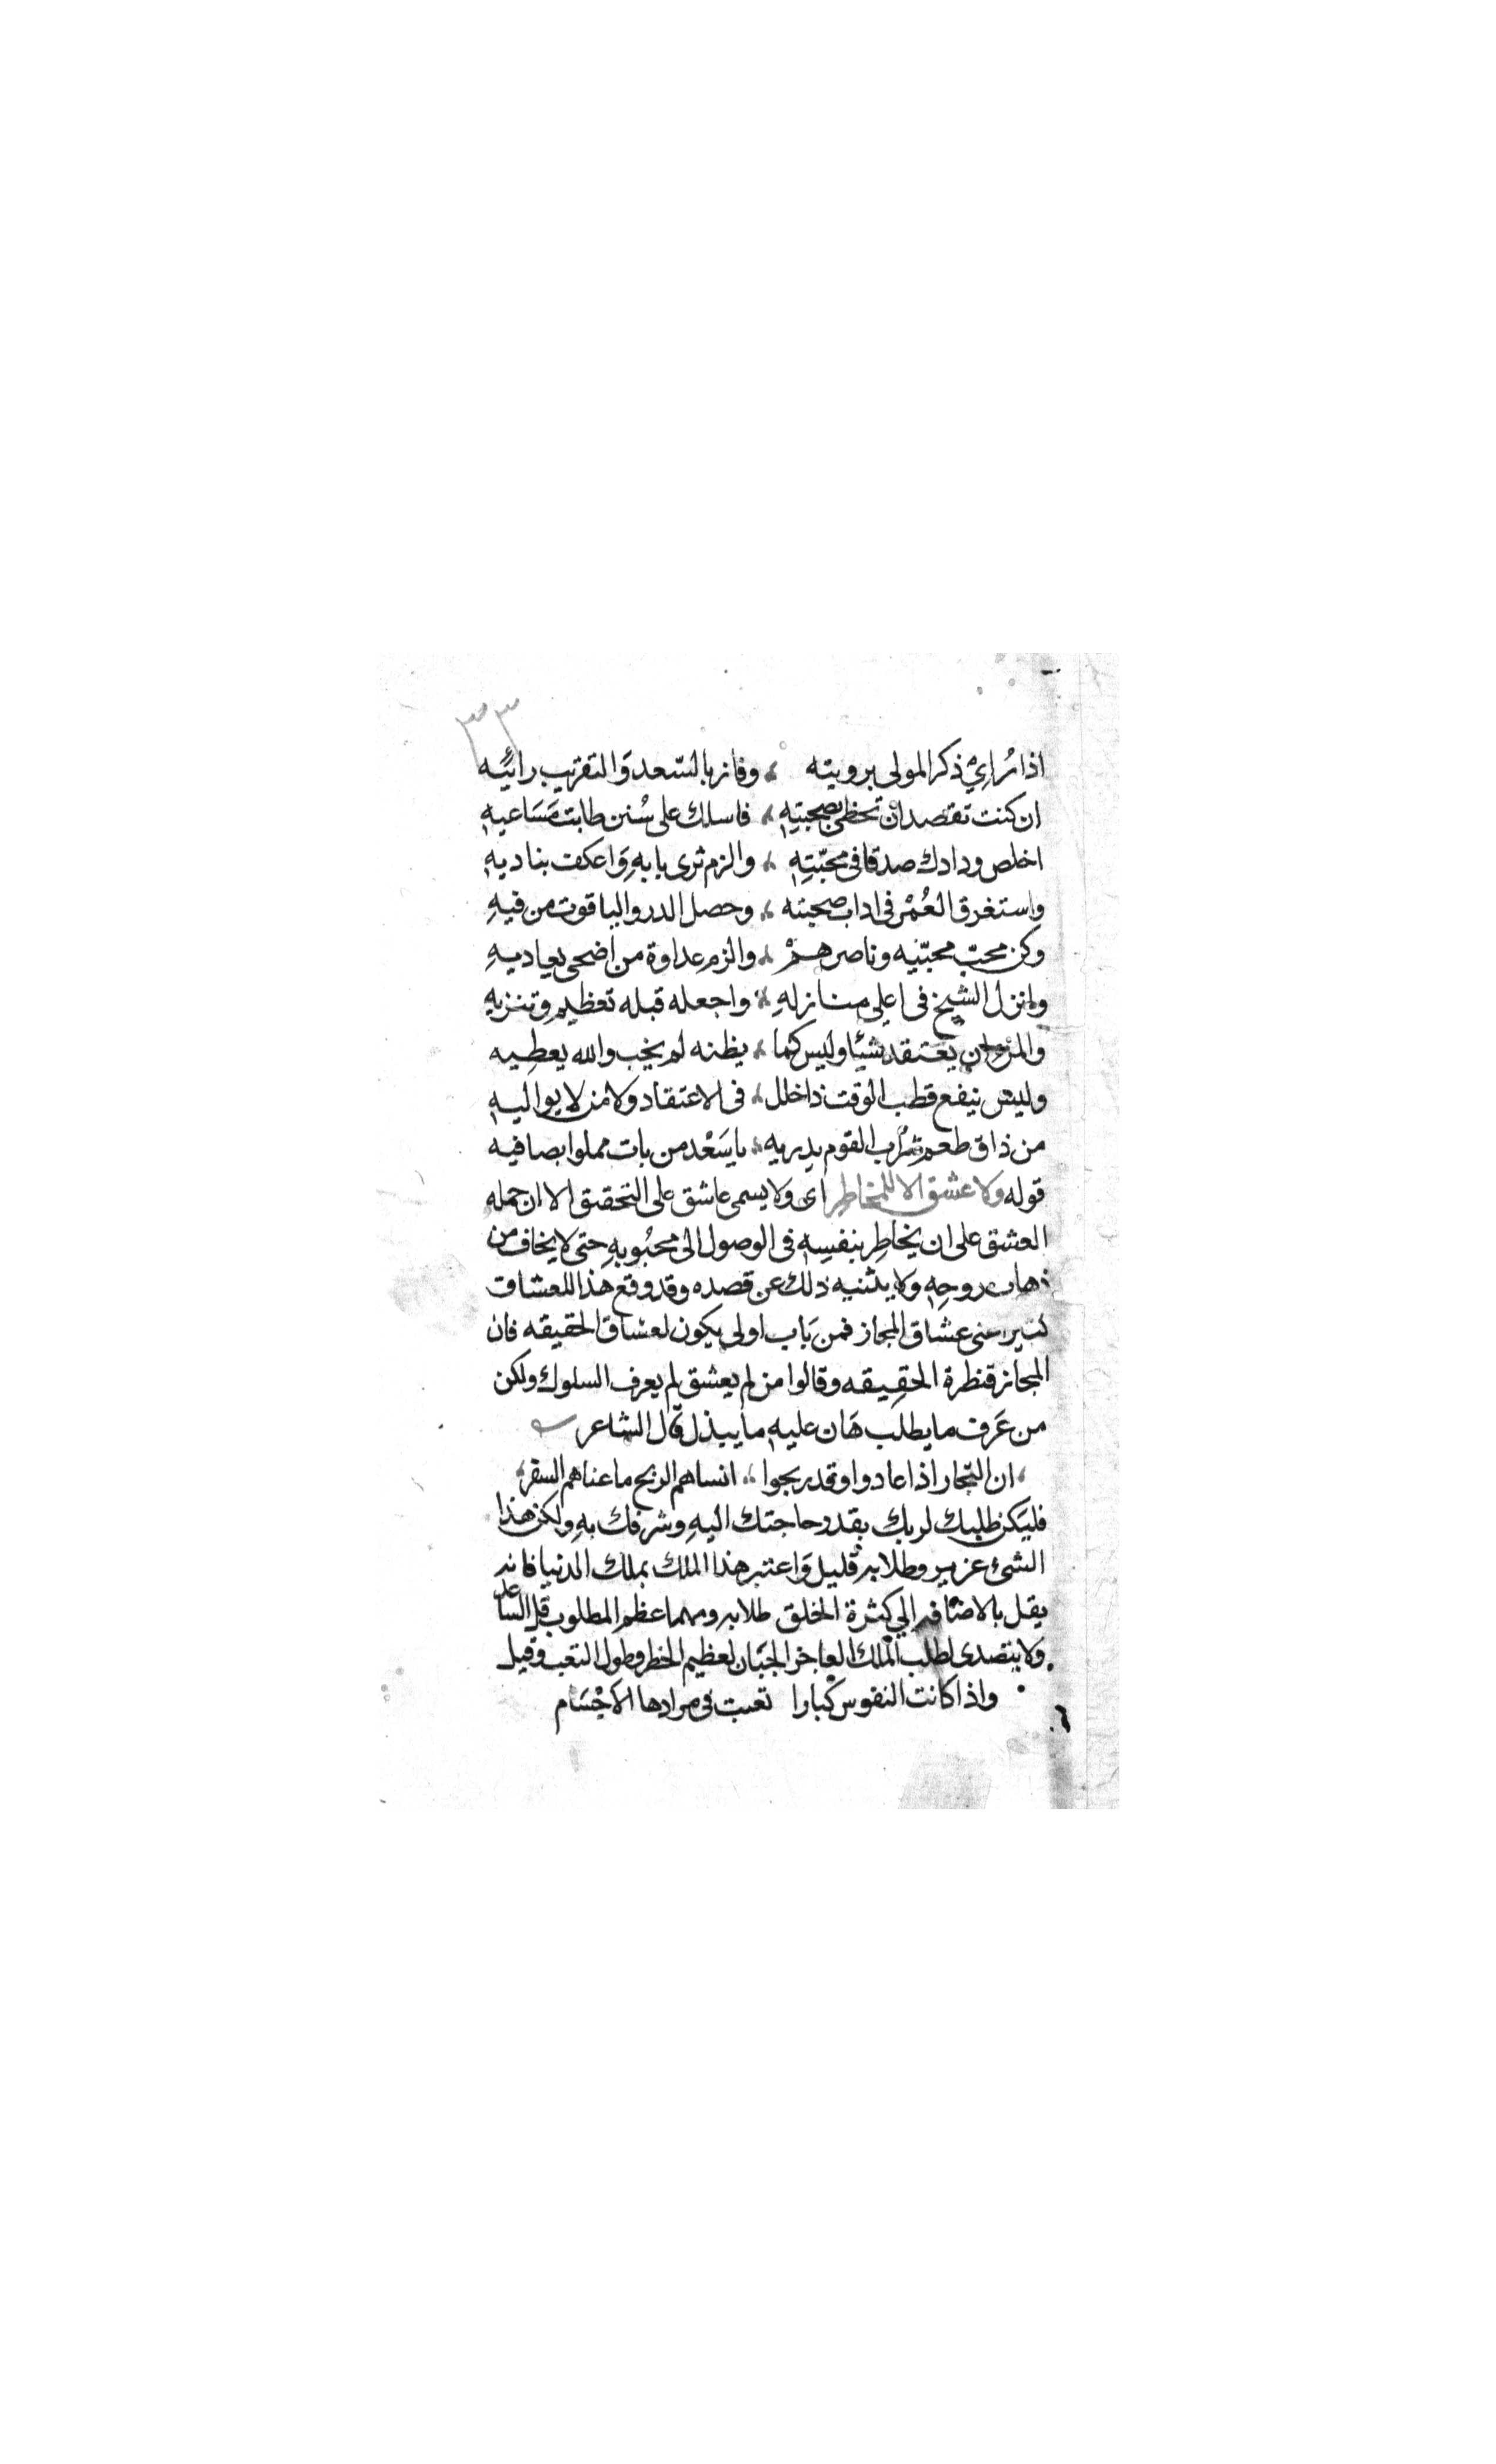 ٣٣
اذا رُإيْ ذكر المولى برويته ؞ وفاز بالسّعد وَالتقريب رائيَه
ان كنت تقصد انْ تحظى بصحبتهِ ؞ فاسلك على سُنن طابت مَسَاعيهِ
اخلص ودادك صدقا فى محبّتِهِ ؞ والزم ثرى بابهِ وَاعكف بناديهِ
واستغرق العُمْر فى اداب صحبته ؞ وحصل الدر والياقوت من فيهِ
وكن محبّ محبّيه وناصرهمْ ؞ والزم عداوة من اضحى يعاديهِ
وانزل الشيخ فى اعلى منازلهِ ؞ واجعله قبله تعظيم وتنزيه
والمرء ان يعتقد شيئا وليس كما ؞ يظنه لم يخب والله يعطيه
وليس ينفع قطب الوقت ذا خلل ؞ فى الاعتقاد ولا من لا يواليهِ
من ذاق طعم شراب القوم يدريه ؞ يا سَعْد من بات مملوا بصافيه
قوله ولا عشق الا للمخاطر اى ولا يسمى عاشق على التحقيق الا ان حمله
العشق على ان يخاطِر بنفسِهِ فى الوصول الى محبُوبهِ حتى لا يخاف من
ذهاب روحِهِ ولا يثنيه ذلك عن قصده وقد وقع هذا للعشاق
كثيرا سنى عشاق المجاز فمن بَاب اولى يكون لعشاق الحقيقه فان
المجاز قنطرة الحقِيقه وقالوا من لم يعشق لم يعرف السلوك ولكن
من عَرف ما يطلب هَان عليهِ ما يبذل قال الشاعر
ان التجار اذا عادوا وقد ربحوا ؞ انساهم الربح ما عناهم السفر
فليَكن طلبك لربك بقدر حاجتك اليهِ وشرفك بهِ ولكن هذا
الشئ عزيز وطلابه قليل وَاعتبر هذا الملك بملك الدنيا فانه
يقل بالاضافه الي كثرة الخلق طلابه ومهما عظم المطلوب قل المساعد
ولا يتصدى لطلب الملك العاجز الجبَان لعظيم الخطر وطول التعب وقيل
واذا كانت النفوس كبارا تعبت فى مرادها الاجْسَام